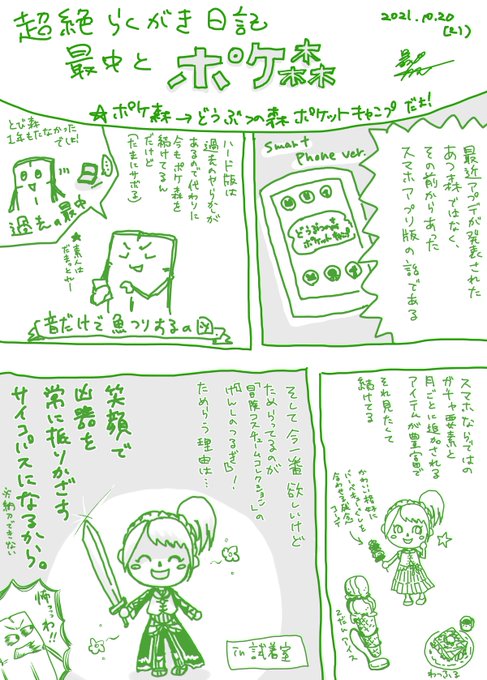 超絶らくがき日記
2021.10.20
最中とポケ森
☆ポケ森→どうぶつの森 ポケットキャンプだよ!
最近アプデが発表された
あつ森ではなく、
その前からあった
スマホアプリ版の話である
Smart
Phone ver.
どうぶつの森
ポケットキャンプ
ハード版は
過去のやらかしが
あるので代わりに
今もポケ森を
続けてるん
だけど
(たまにサボる)
とび森
1年もたなかった
でしょ!
過去の最中
★素人は
だまっとれー
音だけで魚つりするの図
スマホならではの
ガチャ要素と
月ごとに追加される
アイテムが豊富で
それ見たくて
続けてる
かわいい格好に
バーベキューぐしを
合わせる残念
コーデ
2だんアイス
わっふる
そして今一番欲しいけど
ためらってるのが
「冒険コスチュームコレクション」の
「けんしのつるぎ」!
ためらう理由は…
笑顔で
凶器を
常に振りかざす
サイコパスになるから。
※納刀できない
in 試着室
怖っっわ!!